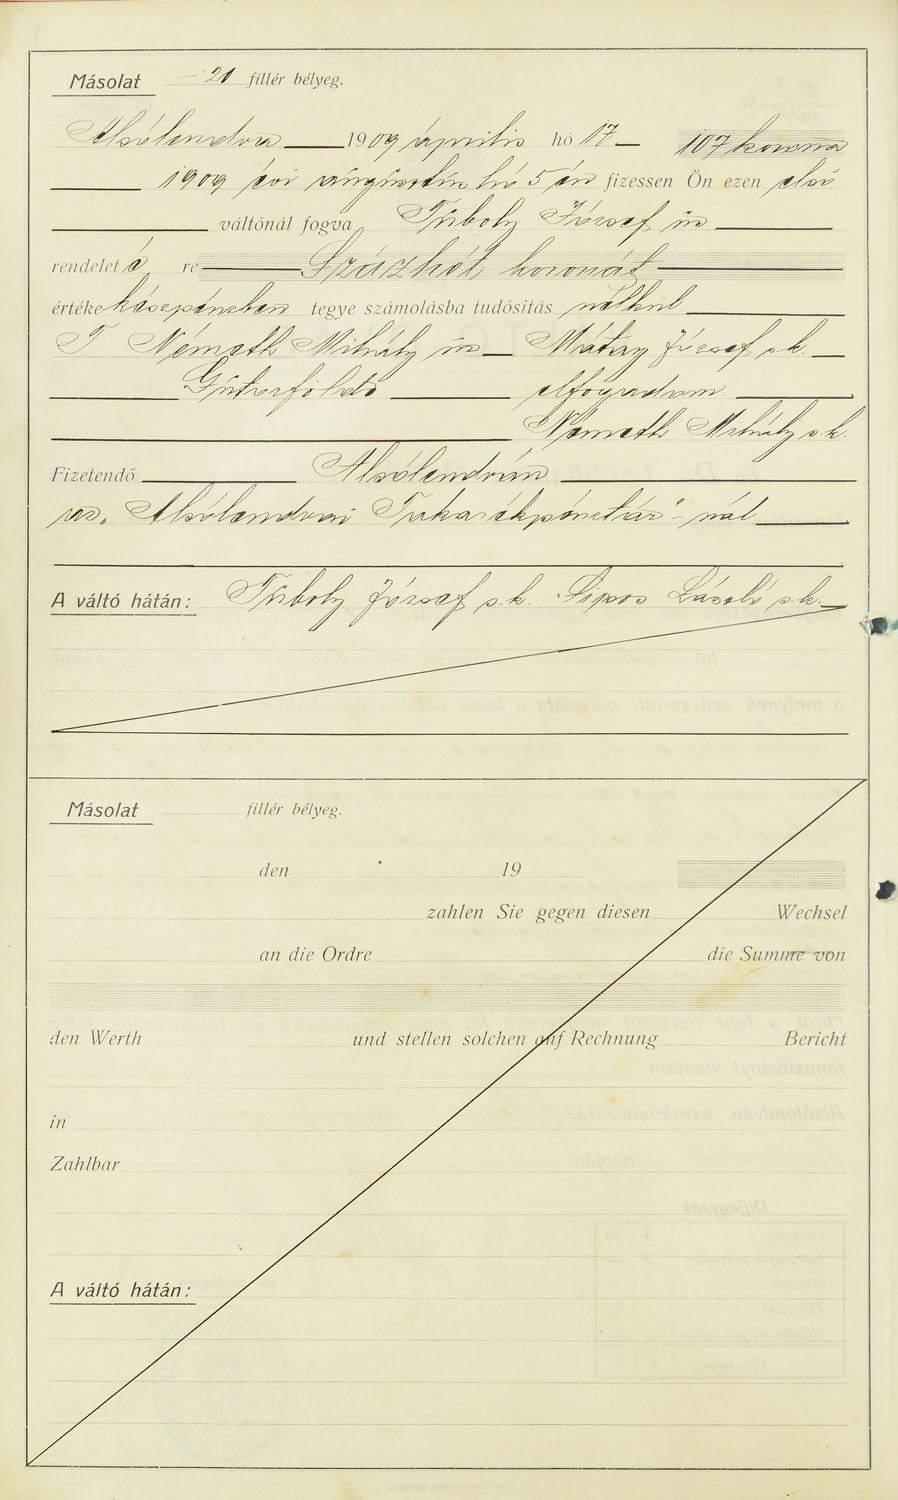 Másolat 20 fillér bélyeg.
Alsólendva 1909 április hó 17 107 korona
1909 évi augusztus hó 5 én fizessen Ön ezen első
váltónál fogva Tüboly József úr
rendelet é re Százhét koronát
értéke készpénzben tegye számolásba tudósítás nélkül
T. Németh Mihály úr Mátay József s.k.
Gutorfölde elfogadom
Németh Mihály s.k.
Fizetendő Alsólendván
az „Alsólendvai Takarékpénztár"-nál
A váltó hátán: Tüboly József s.k. Sipos László s.k.
Másolat fillér bélyeg.
den 19
zahlen Sie gegen diesen Wechsel
an die Ordre die Summe von
den Werth und stellen solchen auf Rechnung Bericht
in
Zahlbar
A váltó hátán: